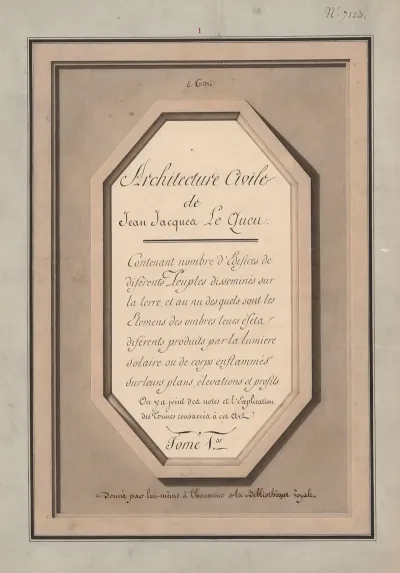 N.º 7123.
1
Architecture Civile
de
Jean Jacques Le Queu.
Contenant nombre d'édifices de
diférents Peuples disseminés sur
la terre, et au nu desquels sont les
Elemens des ombres leurs éfets
diférents produits par la lumiere
solaire ou de corps enflammés
sur leurs plans, élevations et profils
On y a joint des notes et l'Explication
des Termes consacrés à cet Art.
Tome 1.er
Donné par lui-même à l'honneur de la Bibliothèque Royale.